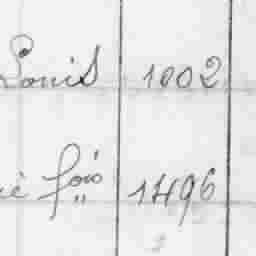 Louis 1002
fois 1496